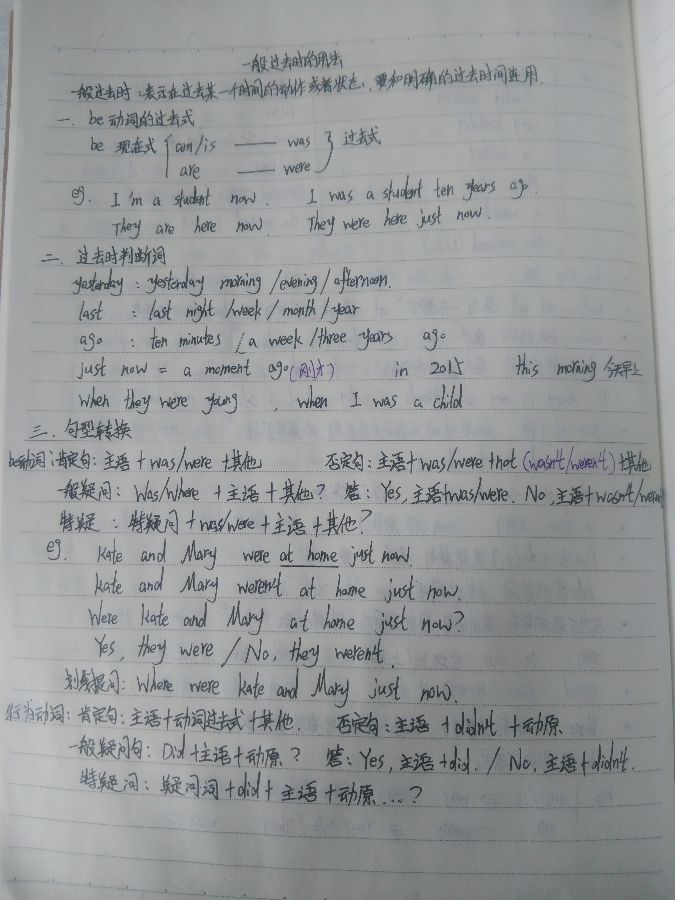 一般过去时的用法
一般过去时:表示在过去某一个时间的动作或者状态,要和明确的过去时间连用.
一. be动词的过去式
be 现在式 { am/is —— was } 过去式
are —— were
eg. I'm a student now. I was a student ten years ago.
They are here now. They were here just now.
二. 过去时判断词
yesterday : yesterday morning /evening / afternoon.
last : last night /week / month / year
ago : ten minutes / a week /three years ago
just now = a moment ago(刚才) in 2015 this morning 今天早上
when they were young , when I was a child
三. 句型转换
be动词:肯定句:主语+was/were+其他 否定句:主语+was/were+not (wasn't/weren't)+其他
一般疑问:Was/Where +主语+其他? 答: Yes,主语+was/were. No,主语+wasn't/weren't
特疑 : 特疑问+was/were+主语+其他?
eg. Kate and Mary were at home just now.
kate and Mary weren't at home just now.
Were kate and Mary at home just now?
Yes, they were / No, they weren't.
划线提问: Where were kate and Mary just now.
行为动词:肯定句:主语+动词过去式+其他. 否定句:主语+didn't+动原
一般疑问句: Did+主语+动原? 答: Yes,主语+did. / No,主语+didn't.
特疑问: 疑问词+did+主语+动原...?